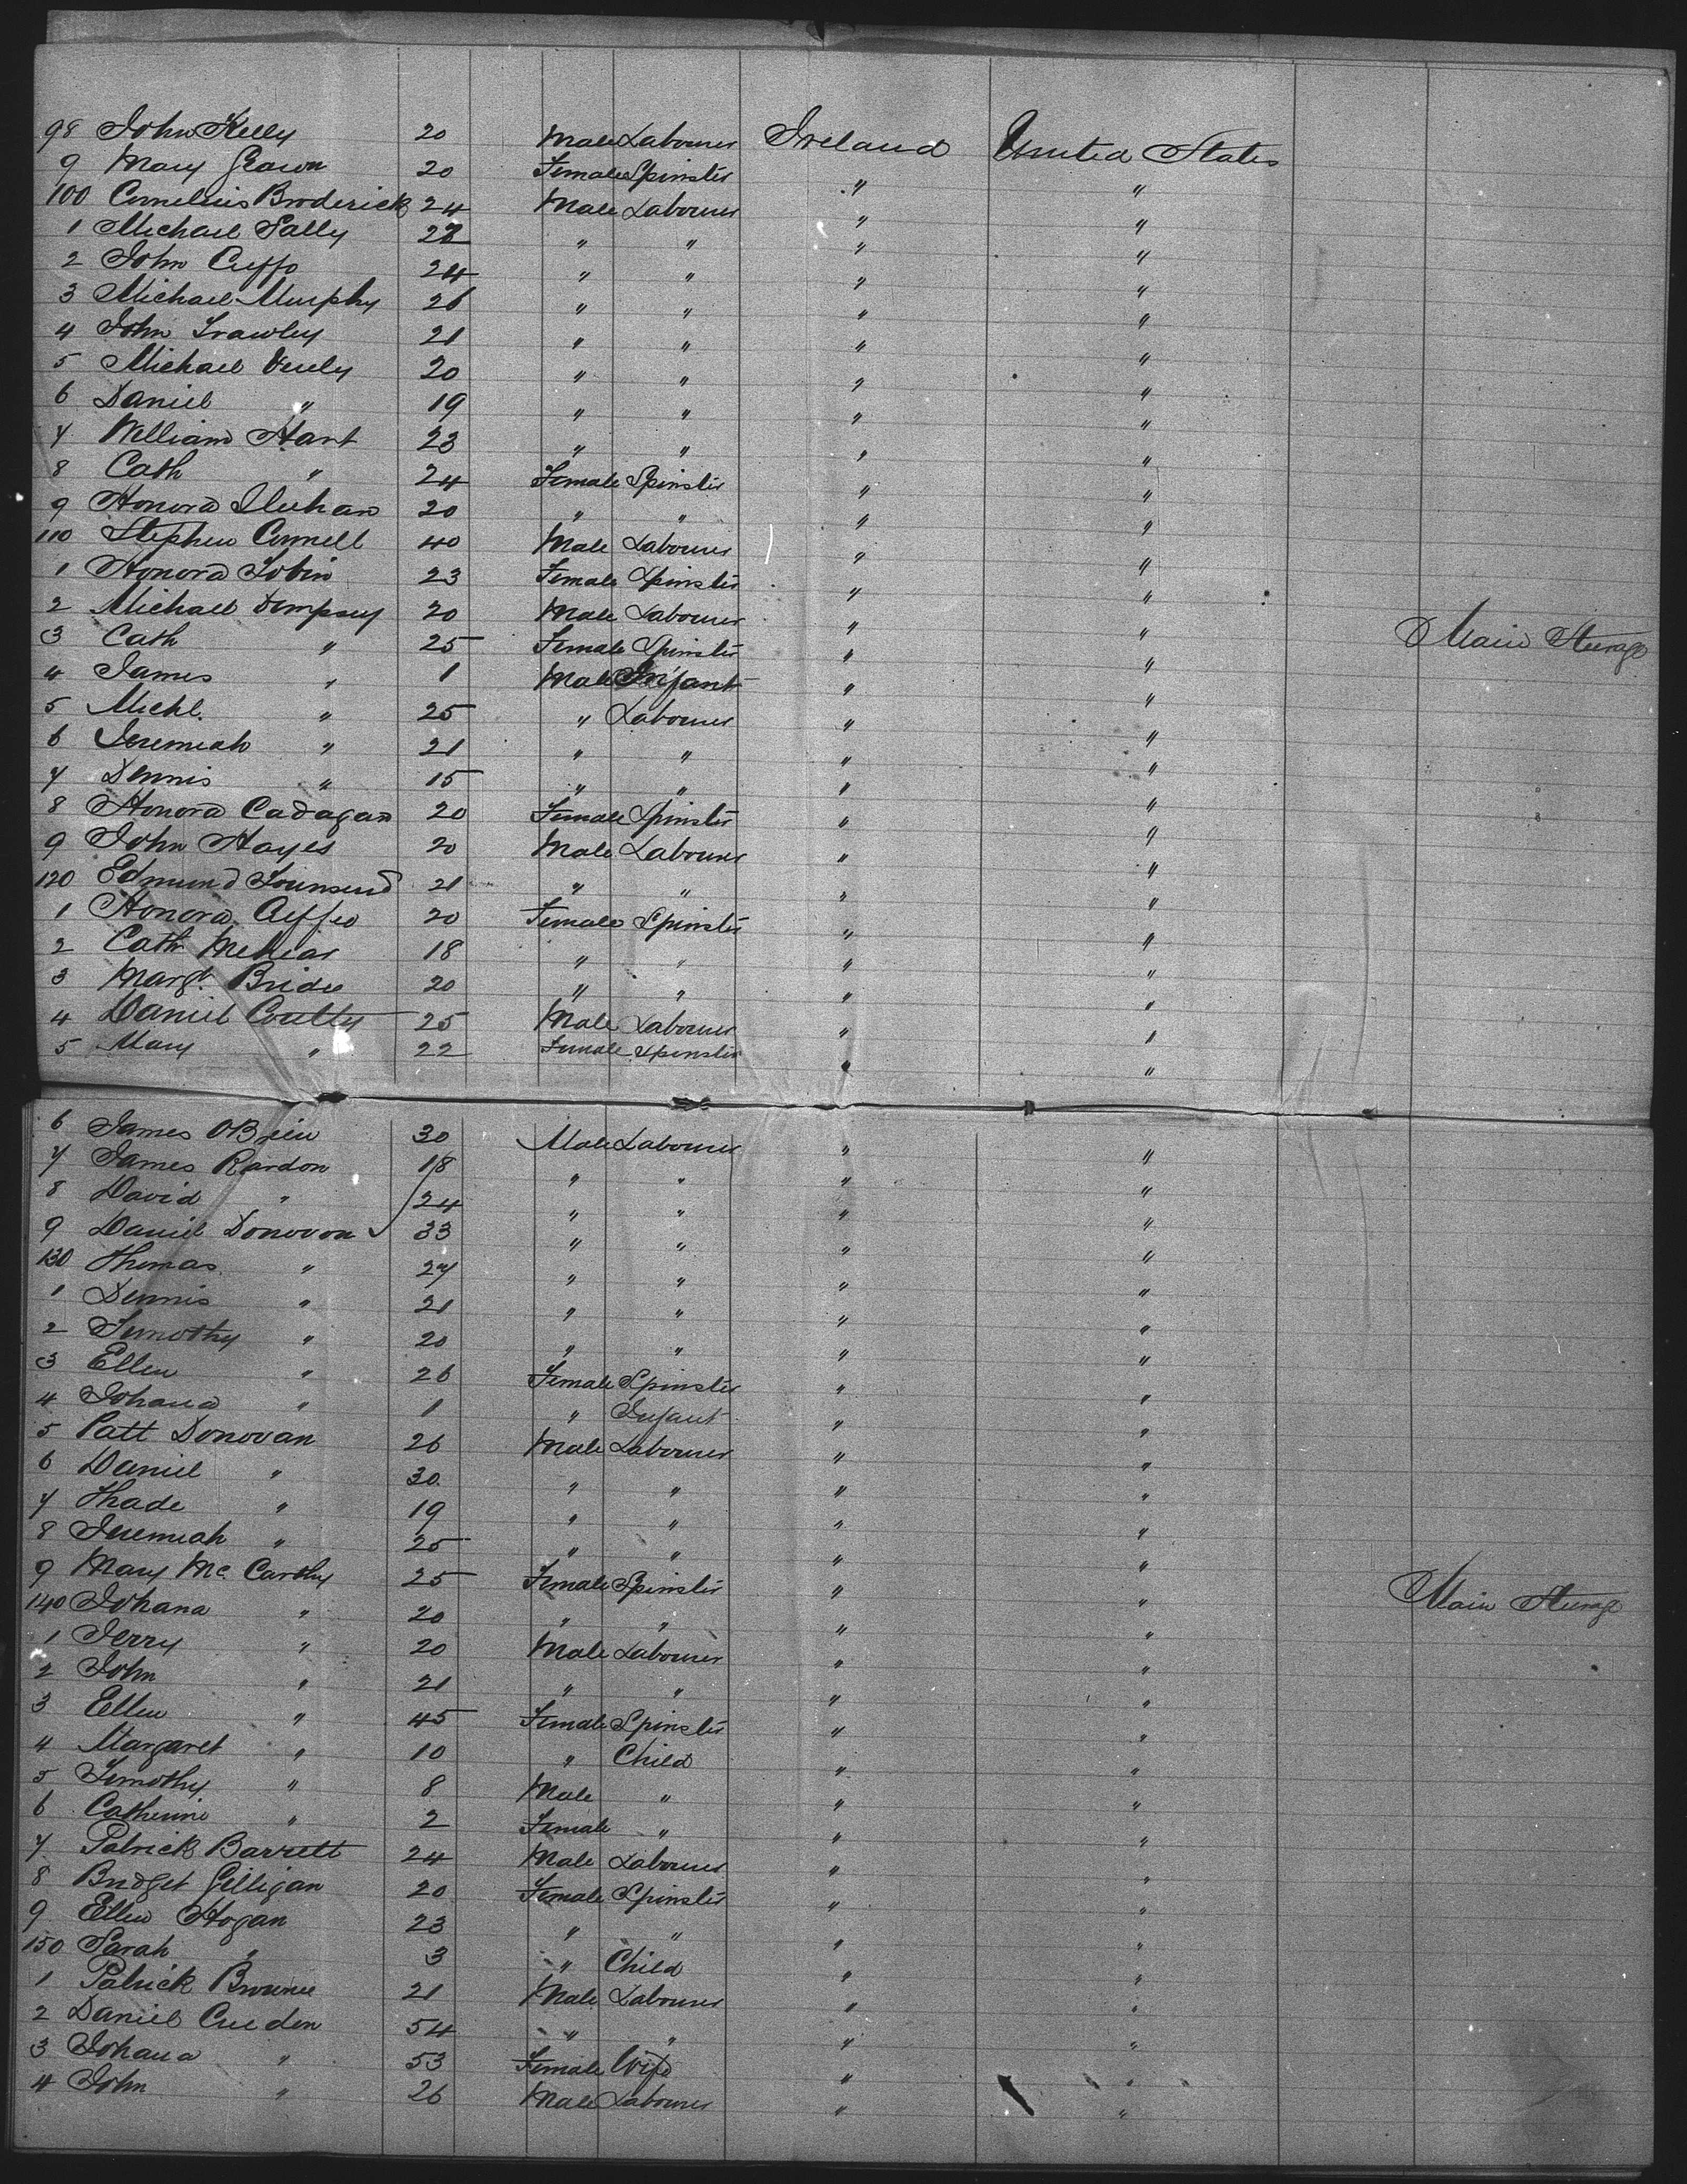 98 John Kelly 20 Male Labourer Ireland United States
9 Mary 20 Female Spinster " "
100 Cornelius Broderick 24 Male Labourer " "
1 Michael Lally " " " "
2 John Cuffe 24 " " " "
3 Michael Murphy 26 " " " "
4 John 21 " " " "
5 Michael 20 " " " "
6 Daniel " 19 " " " "
7 William Hart 23 " " " "
8 Cath " 24 Female Spinster " "
9 Honora 20 " " " "
110 Stephen Connell 40 Male Labourer " "
1 Honora Tobin 23 Female Spinster " "
2 Michael Dempsey 20 Male Labourer " " Main Steerage
3 Cath " 25 Female Spinster " "
4 James " 1 Male Infant " "
5 Michl. " 25 " Labourer " "
6 Jeremiah " 21 " " " "
7 Dennis " 15 " " " "
8 Honora Cadagan 20 Female Spinster " "
9 John Hayes 20 Male Labourer " "
120 Edmund Tounsend 21 " " " "
1 Honora 20 Female Spinster " "
2 Cath 18 " " " "
3 Margt. Bride 20 " " " "
4 Daniel 25 Male Labourer " "
5 Mary " 22 Female Spinster " "
6 James OBrien 30 Male Labourer " "
7 James Rardon 18 " " " "
8 David " 24 " " " "
9 Daniel Donovon 33 " " " "
130 Thomas " 27 " " " "
1 Dennis " 21 " " " "
2 Timothy " 20 " " " "
3 Ellen " 26 Female Spinster " "
4 Johana " 1 " Infant " "
5 Patt Donovan 26 Male Labourer " "
6 Daniel " 30 " " " "
7 Thade " 19 " " " "
8 Jeremiah " 25 " " " "
9 Mary Mc Carthy 25 Female Spinster " " Main Steerage
140 Johana " 20 " " " "
1 Jerry " 20 Male Labourer " "
2 John " 21 " " " "
3 Ellen " 45 Female Spinster " "
4 Margaret " 10 " Child " "
5 Timothy " 8 Male " " "
6 Catherine " 2 Female " " "
7 Patrick Barrett 24 Male Labourer " "
8 Bridget Gilligan 20 Female Spinster " "
9 Ellen Hogan 23 " " " "
150 Sarah " 3 " Child " "
1 Patrick Browne 21 Male Labourer " "
2 Daniel Creeden 54 " " " "
3 Johana " 53 Female Wife " "
4 John " 26 Male Labourer " "